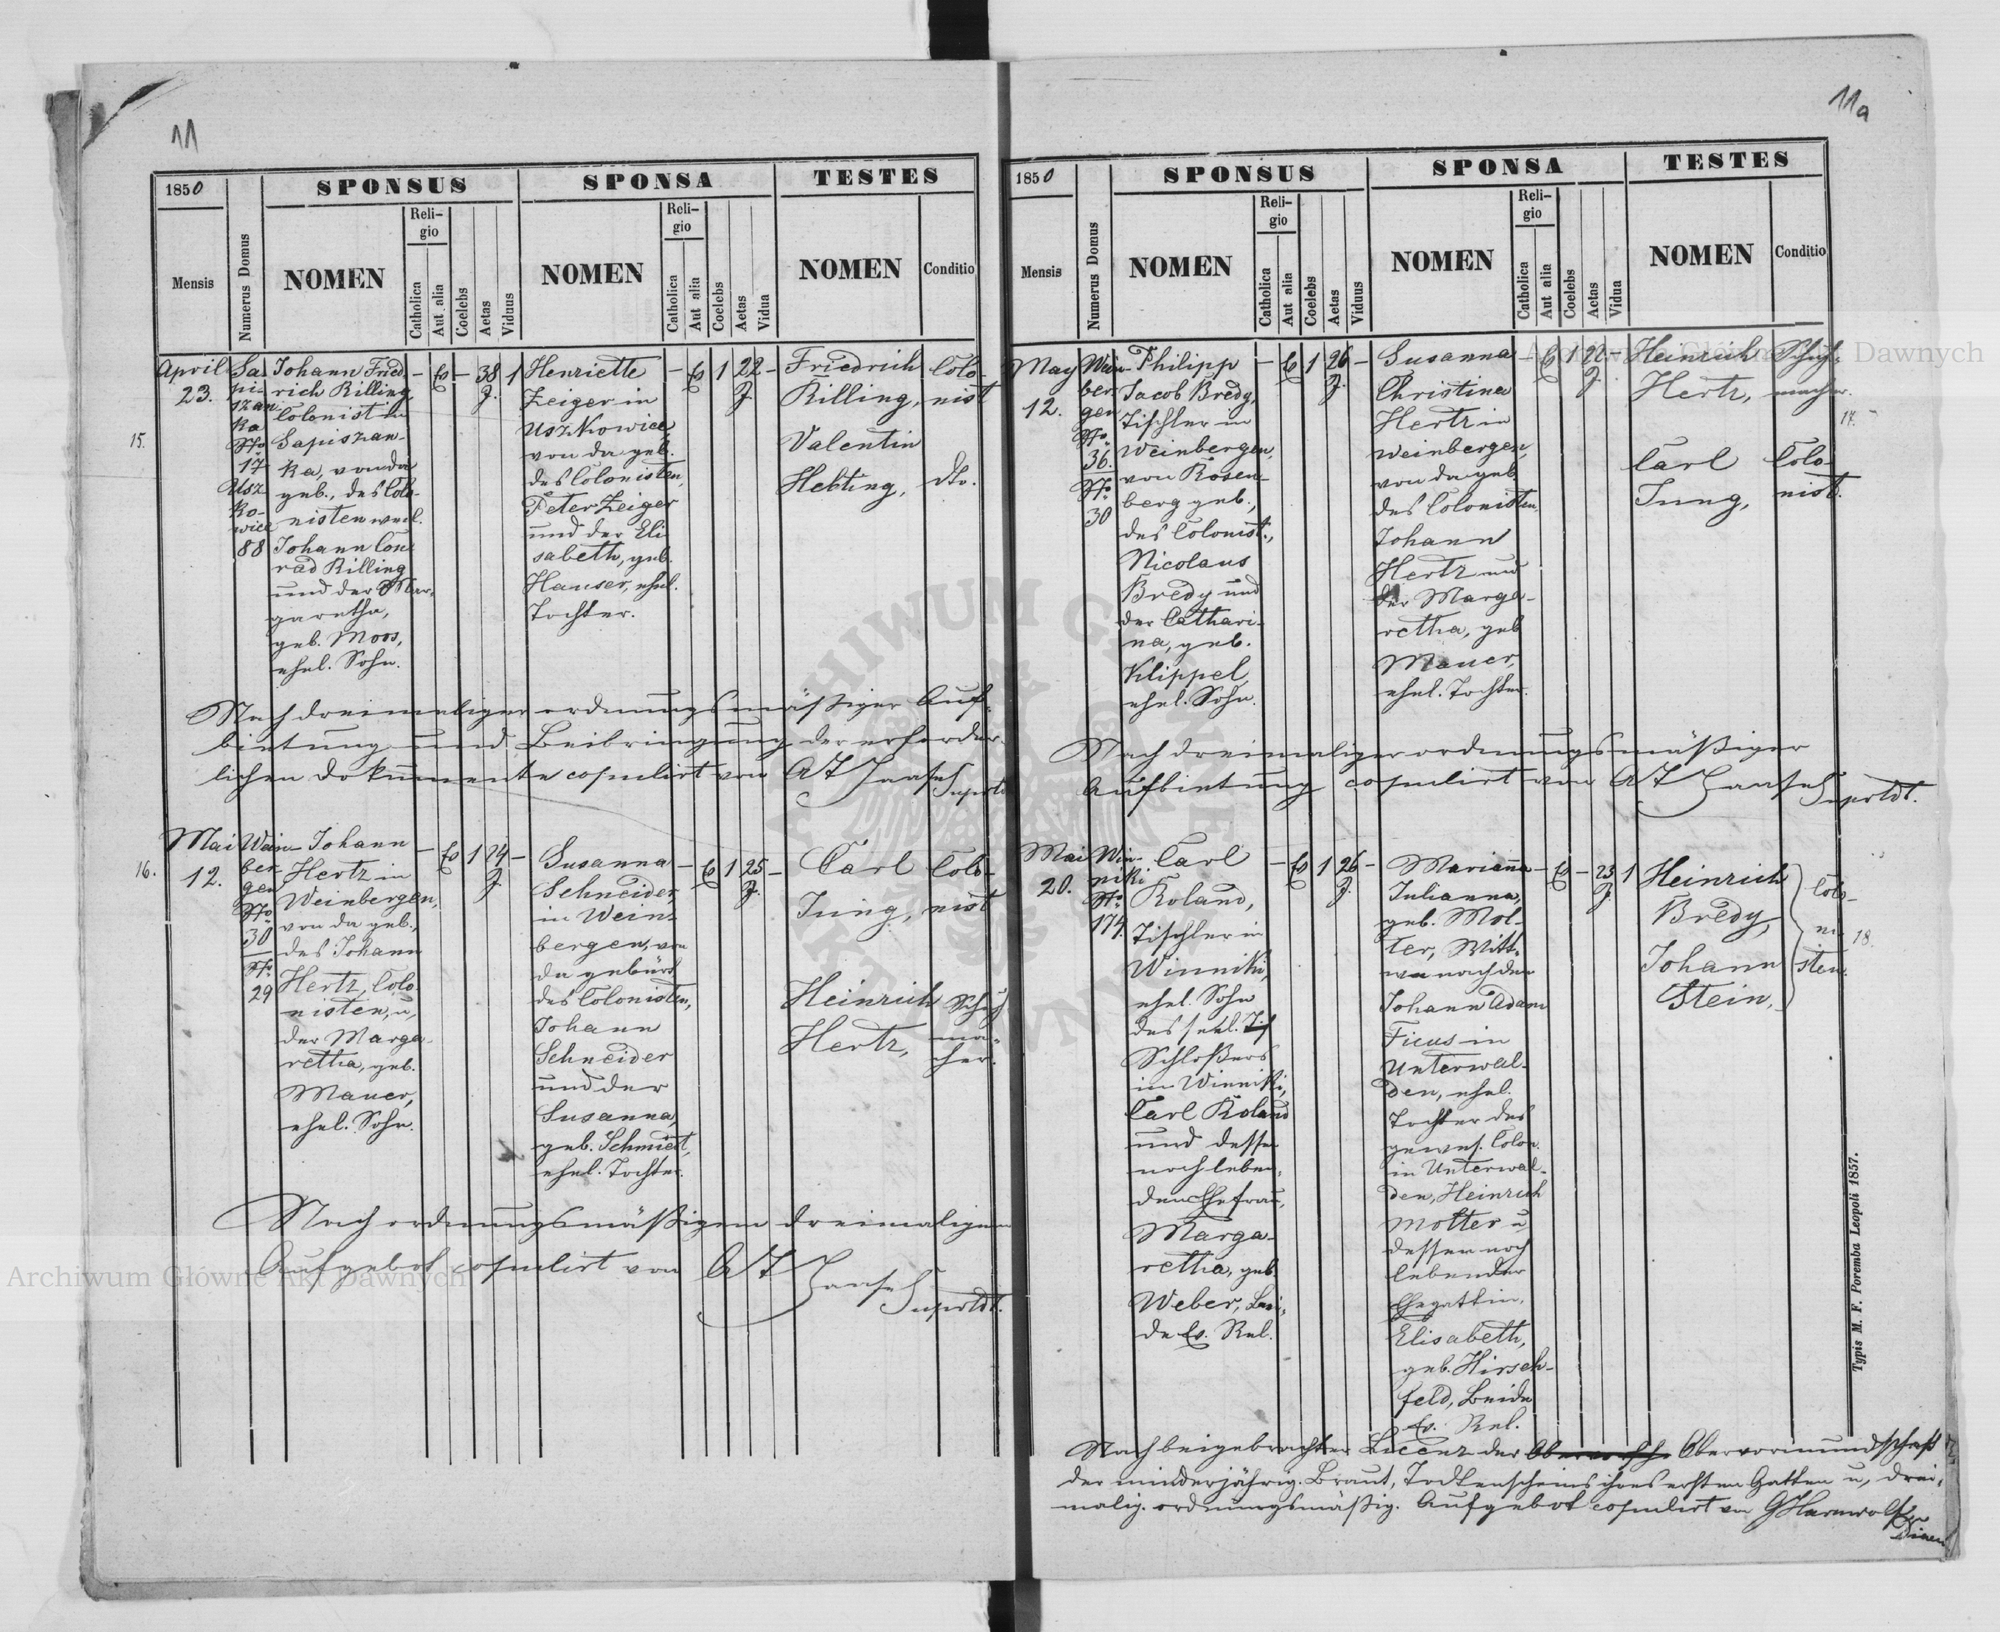 11
1850
SPONSUS
SPONSA
TESTES
Mensis
Numerus Domus
NOMEN
Reli-
gio
Catholica
Aut alia
Coelebs
Aetas
Viduus
NOMEN
Reli-
gio
Catholica
Aut alia
Coelebs
Aetas
Vidua
NOMEN
Conditio
15.
April
23.
Sa
pi-
szan
ka
No
17
Usz
ko-
wice
88
Johann Fried
rich Rilling,
Colonist in
Sapiszan-
ka, von da
geb., des Colo-
nisten weil.
Johann Con
rad Rilling
und der Mar,
garetha,
geb. Moos,
ehel. Sohn.
– Ev – 38 1
J.
Henriette
Zeiger in
Uszkowice,
von da geb.
des Colonisten,
Peter Zeiger
und der Eli
sabeth, geb.
Hauser, ehel.
Tochter.
– Ev 1 22 –
J.
Friedrich Colo-
Rilling, nist
Valentin
Hebting, dto.
Nach dreimaliger ordnungsmäßiger Auf-
bietung und Beibringung der erforder-
lichen Dokumente copulirt von AT Haase
Suprtdt.
16.
Mai
12.
Wein-
ber-
gen
No
30
No
29
Johann
Hertz in
Weinbergen,
von da geb.,
des Johann
Hertz, Colo-
nisten, u,
der Marga-
retha, geb.
Mauer,
ehel. Sohn.
– Ev 1 24 –
J.
Susanna
Schneider,
in Wein-
bergen, von
da gebürt
des Colonisten,
Johann
Schneider
und der
Susanna,
geb. Schmidt,
ehel. Tochter.
– Ev 1 25 –
J.
Carl Colo-
Jung, nist
Heinrich Schuh
Hertz, ma-
cher.
Nach ordnungsmäßigem dreimaligem
Aufgebot copulirt von AT Haase
Suprtdt.
11a
1850
SPONSUS
SPONSA
TESTES
Mensis
Numerus Domus
NOMEN
Reli-
gio
Catholica
Aut alia
Coelebs
Aetas
Viduus
NOMEN
Reli-
gio
Catholica
Aut alia
Coelebs
Aetas
Vidua
NOMEN
Conditio
May
12.
Wein-
ber-
gen
No
36.
No
30
Philipp
Jacob Bredy,
Tischler in
Weinbergen,
von Rosen-
berg geb.,
des Colonist.,
Nicolaus
Bredy und
der Cathari-
na, geb.
Klippel,
ehel. Sohn.
– Ev 1 26 –
J.
Susanna
Christina
Hertz in
Weinbergen,
von da geb.
des Colonisten,
Johann
Hertz und
der Marga-
retha, geb
Mauer,
ehel. Tochter.
– Ev 1 22 –
J.
Heinrich Schuh-
Hertz, macher.
Carl Colo-
Jung, nist.
17.
Nach dreimaliger ordnungsmäßiger
Aufbietung copulirt von AT Haase
Suprtdt.
Mai
20.
Win-
niki
No
174.
Carl
Roland,
Tischler in
Winniki,
ehel. Sohn
des seel.
Schloßers
in Winniki,
Carl Roland
und dessen
noch leben,
den Ehefrau,
Marga-
retha, geb.
Weber, bei-
de Ev. Rel.
– Ev 1 26 –
J.
Marianna
Julianna,
geb. Mol-
ter, Witt-
we nach dem
Johann Adam
Ficus in
Unterwal-
den, ehel.
Tochter des
gewes. Colon.
in Unterwal-
den, Heinrich
Molter u
dessen noch
lebender
Ehegattin,
Elisabeth,
geb. Hirsch-
feld, beide
Ev. Rel.
– Ev – 23 1
J.
Heinrich
Bredy,
Johann
Stein,
Colo-
ni-
sten.
18.
Nach beigebrachter Licenz der Obervormundschaft
der minderjährig. Braut, Todtenscheins ihres ersten Gatten u, drei,
malig. ordnungsmäßig. Aufgebot copulirt von
Typis M. F. Poremba Leopoli 1857.
Archiwum Główne Akt Dawnych